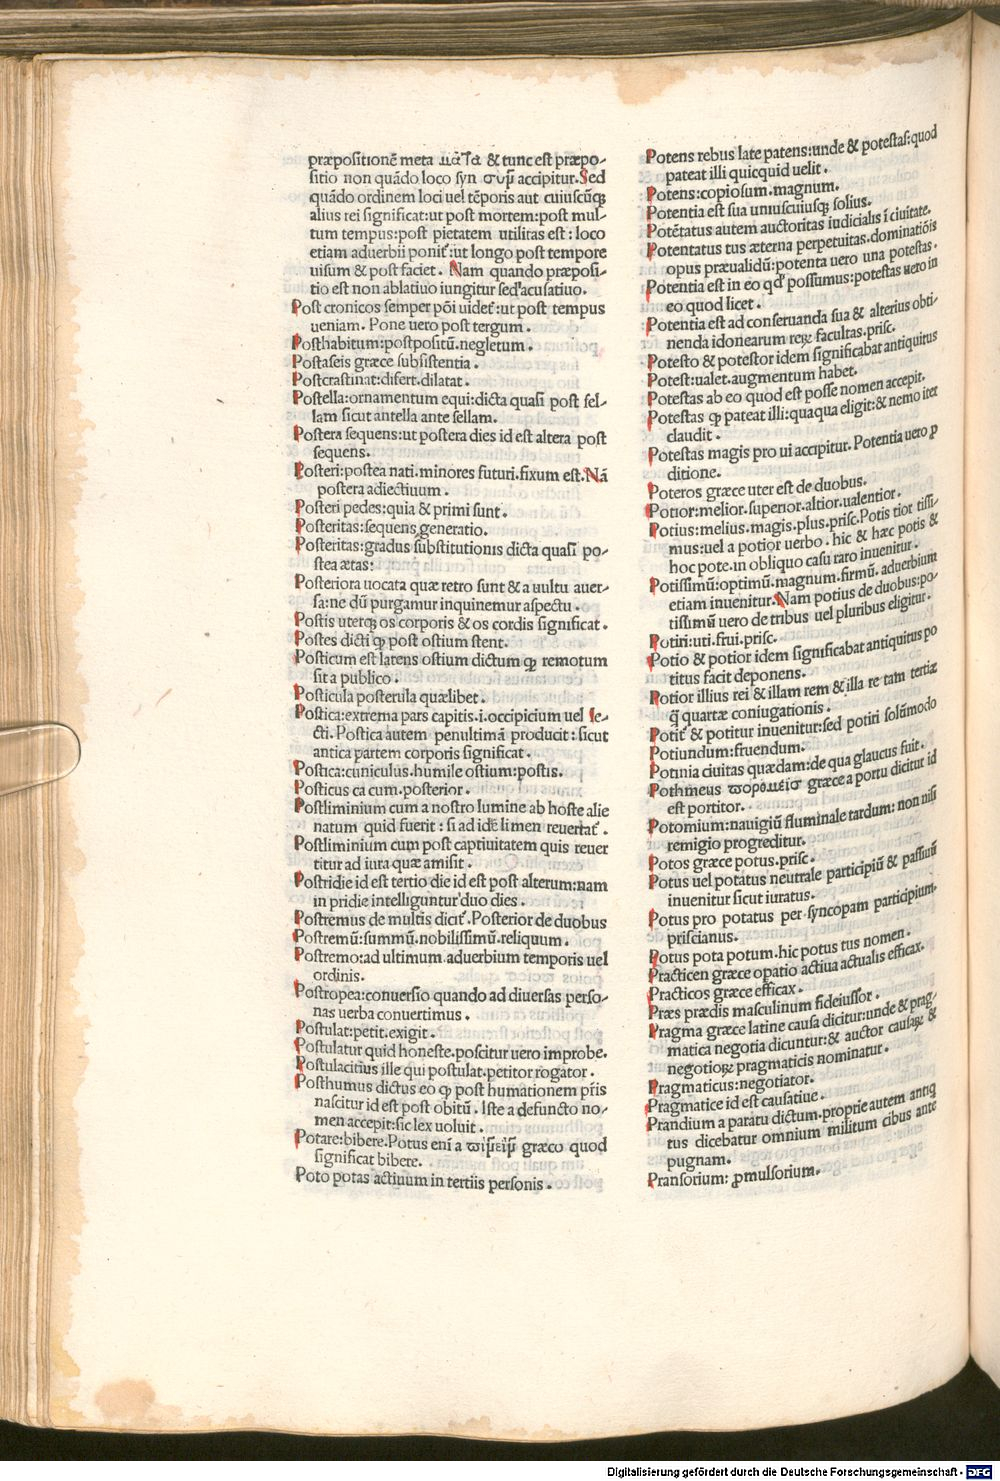 præpositionē meta μαͳα & tunc est præpo-
sitio non quādo loco syn συμ accipitur. Sed
quādo ordinem loci uel tēporis aut cuiuscūqꝫ
alius rei significat: ut post mortem: post mul-
tum tempus: post pietatem utilitas est: loco
etiam aduerbii poniť: ut longo post tempore
uisum & post faciet. Nam quando præposi-
tio est non ablatiuo iungitur sed acusatiuo.
Post cronicos semper pōi uideť: ut post tempus
ueniam. Pone uero post tergum.
Posthabitum: postpositū. neglectum.
Postaseis græce subsistentia.
Postcrastinat: difert. dilatat.
Postella: ornamentum equi: dicta quasi post sel-
lam sicut antella ante sellam.
Postera sequens: ut postera dies id est altera post
sequens.
Posteri: postea nati. minores futuri. fixum est. Nā
postera adiectiuum.
Posteri pedes: quia & primi sunt.
Posteritas: sequens generatio.
Posteritas: gradus substitutionis dicta quasi po-
stea ætas:
Posteriora uocata quæ retro sunt & a uultu auer-
sa: ne dū purgamur inquinemur aspectu.
Postis uterqꝫ os corporis & os cordis significat.
Postes dicti ꝙ post ostium stent.
Posticum est latens ostium dictum ꝙ remotum
sit a publico.
Posticula posterula quælibet.
Postica: extrema pars capitis. i. occipicium uel se-
cti. Postica autem penultimā producit: sicut
antica partem corporis significat.
Postica: cuniculus. humile ostium: postis.
Posticus ca cum. posterior.
Postliminium cum a nostro lumine ab hoste alie
natum quid fuerit: si ad idē limen reuertať.
Postliminium cum post captiuitatem quis reuer
titur ad iura quæ amisit.
Postridie id est tertio die id est post alterum: nam
in pridie intelliguntur duo dies.
Postremus de multis diciť. Posterior de duobus
Postremū: summū. nobilissimū. reliquum.
Postremo: ad ultimum aduerbium temporis uel
ordinis.
Postropea: conuersio quando ad diuersas perso-
nas uerba conuertimus.
Postulat: petit. exigit.
Postulatur quid honeste. poscitur uero improbe.
Postulacitius ille qui postulat. petitor rogator.
Posthumus dictus eo ꝙ post humationem pr̄is
nascitur id est post obitū. Iste a defuncto no-
men accepit: sic lex uoluit.
Potare: bibere. Potus eni a græco quod
significat bibere.
Poto potas actiuum in tertiis personis.
Potens rebus late patens: unde & potestas: quod
pateat illi quicquid uelit.
Potens: copiosum. magnum.
Potentia est sua uniuscuiusqꝫ solius.
Potētatus autem auctoritas iudicialis ī ciuitate.
Potentatus tus æterna perpetuitas. dominatiōis
opus præualidū: potenta uero una potestas.
Potentia est in eo qđ possumus: potestas uero in
eo quod licet.
Potentia est ad conseruanda sua & alterius obti-
nenda idonearum reꝝ facultas. prisc.
Potesto & potestor idem significabat antiquitus
Potest: ualet. augmentum habet.
Potestas ab eo quod est posse nomen accepit.
Potestas ꝙ pateat illi: quaqua eligit: & nemo iter
claudit.
Potestas magis pro ui accipitur. Potentia uero ꝓ
ditione.
Poteros græce uter est de duobus.
Potior: melior. superior. altior. ualentior.
Potius: melius. magis. plus. prisc. Potis tior tissi-
mus: uel a potior uerbo. hic & hæc potis &
hoc pote. in obliquo casu raro inuenitur.
Potissimū: optimū. magnum. firmū. aduerbium
etiam inuenitur. Nam potius de duobus: po-
tissimū uero de tribus uel pluribus eligitur.
Potiri: uti. frui. prisc.
Potio & potior idem significabat antiquitus po
titus facit deponens.
Potior illius rei & illam rem & illa re tam tertiæ
q̄ quartæ coniugationis.
Potiť & potitur inuenitur: sed potiri solūmodo
Potiundum: fruendum.
Potnia ciuitas quædam: de qua glaucus fuit.
Pothmeus græce a portu dicitur id
est portitor.
Potomium: nauigiū fluminale tardum: non nisi
remigio progreditur.
Potos græce potus. prisc.
Potus uel potatus neutrale participiū & passiuū
inuenitur sicut iuratus.
Potus pro potatus per syncopam participium.
priscianus.
Potus pota potum. hic potus tus nomen.
Practicen græce opatio actiua actualis efficax.
Practicos græce efficax.
Præs prædis masculinum fideiussor.
Pragma græce latine causa dicitur: unde & prag-
matica negotia dicuntur: & auctor causaꝝ &
negotioꝝ pragmaticis nominatur.
Pragmaticus: negotiator.
Pragmatice id est causatiue.
Prandium a paratu dictum. proprie autem antiq
tus dicebatur omnium militum cibus ante
pugnam.
Pransorium: ꝓmulsorium.
Digitalisierung gefördert durch die Deutsche Forschungsgemeinschaft - DFG